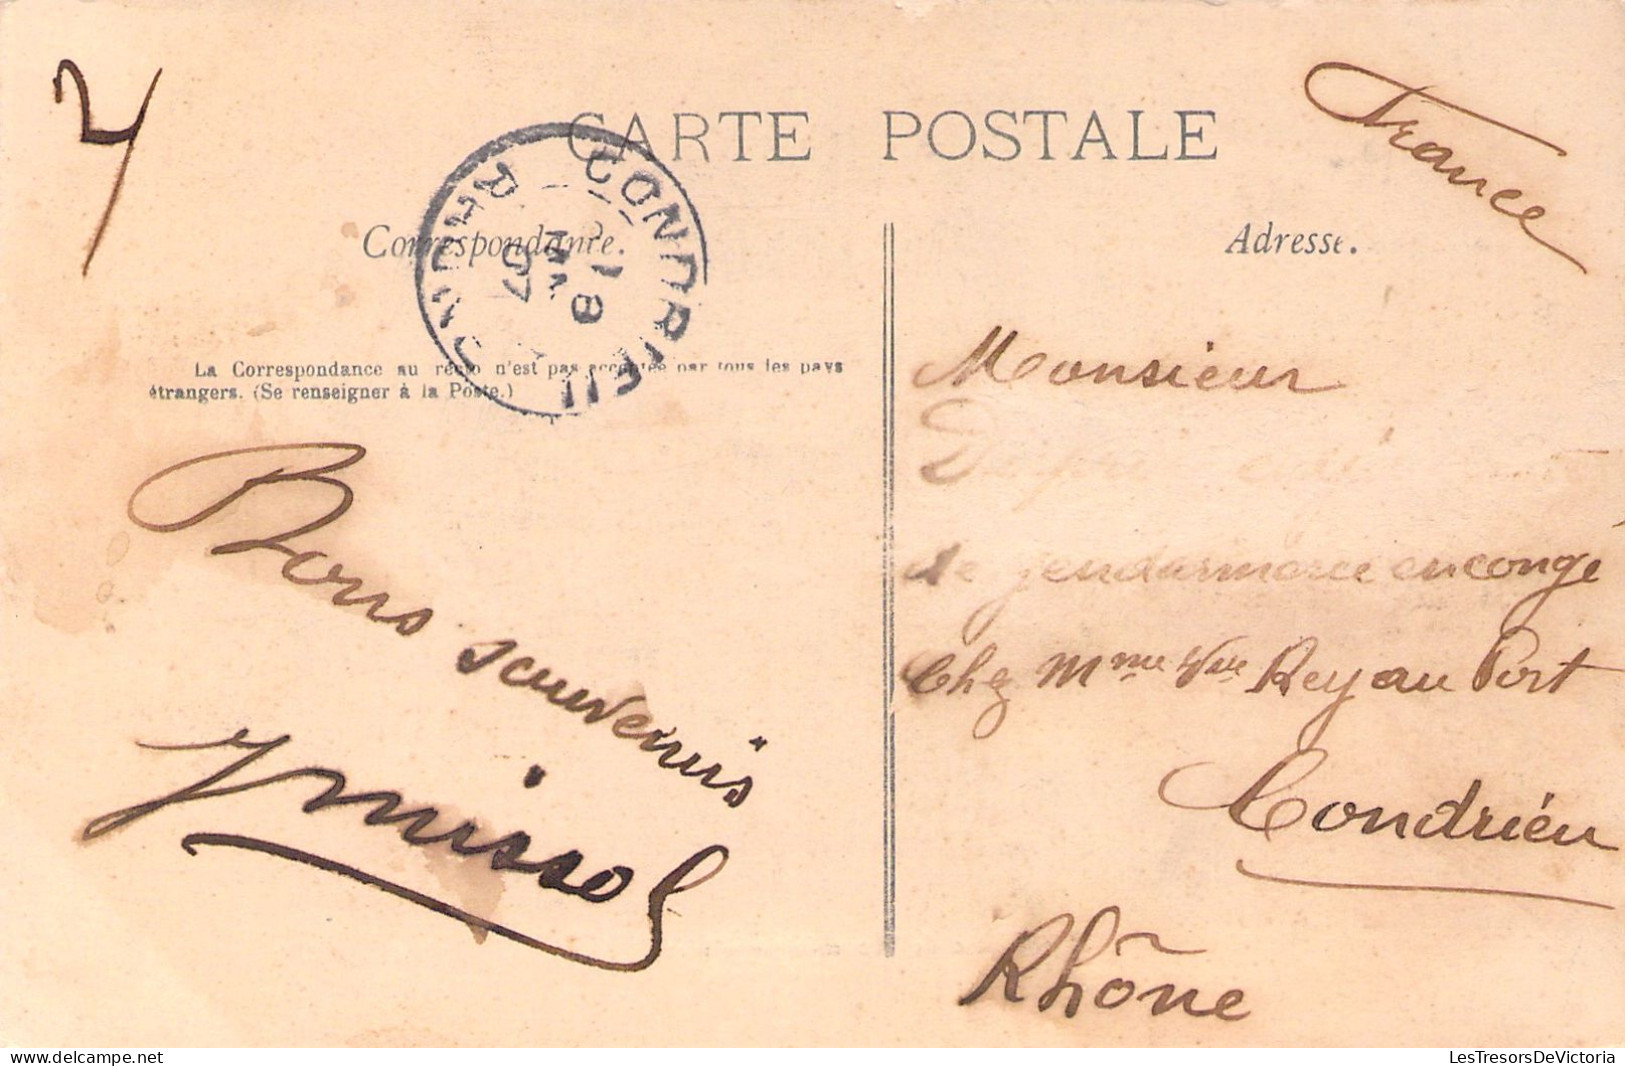 CARTE POSTALE
France
Correspondance.
Adresse.
CONDRIEU
RHONE
18
MAI
07
La Correspondance au recto n'est pas acceptée par tous les pays
étrangers. (Se renseigner à la Poste.)
Bons souvenirs
Monsieur
de gendarmerie en congé
Chez Mme Vve Rey au Port
Condriéu
Rhône
LesTresorsDeVictoria